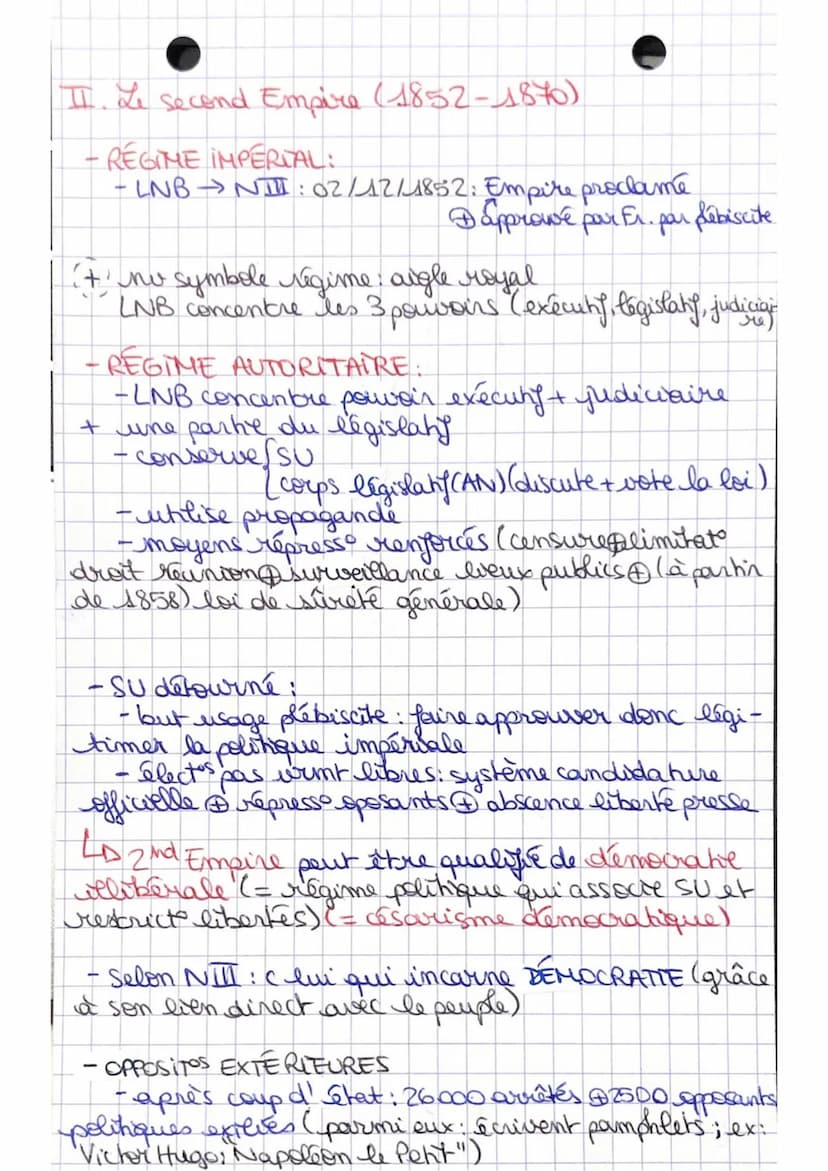 II. Le second Empire (1852-1870)
- RÉGIME IMPÉRIAL:
- LNB → NIII : 02/12/1852: Empire proclamé
⊕ Approuvé par Fr. par plébiscite
(+) nv symbole régime: aigle royal
LNB concentre les 3 pouvoirs (exécutif, législatif, judiciai-
re)
- RÉGIME AUTORITAIRE:
- LNB concentre pouvoir exécutif + judiciaire
+ une partie du législatif
- conserve { SU
corps législatif (AN) (discute + vote la loi)
- utilise propagande
- moyens répress° renforcés (censure ⊕ limitat°
droit réunion ⊕ surveillance lieux publics ⊕ (à partir
de 1858) loi de sûreté générale)
- SU détourné :
- but usage plébiscite : faire approuver donc légi-
timer la politique impériale
- élect°s pas vrmt libres: système candidature
officielle ⊕ répress° oposants ⊕ abscence liberté presse
↳ 2nd Empire peut être qualifié de démocratie
illibérale (= régime politique qui associe SU et
restrict° libertés) (= césarisme démocratique)
- Selon NIII : c lui qui incarne DÉMOCRATIE (grâce
à son lien direct avec le peuple)
- OPPOSIT°S EXTÉRIEURES
- après coup d'état : 26000 arrêtés ⊕ 2500 opposants
politiques exilés (parmi eux: écrivent pamphlets ; ex:
Victor Hugo; "Napoléon le Petit")